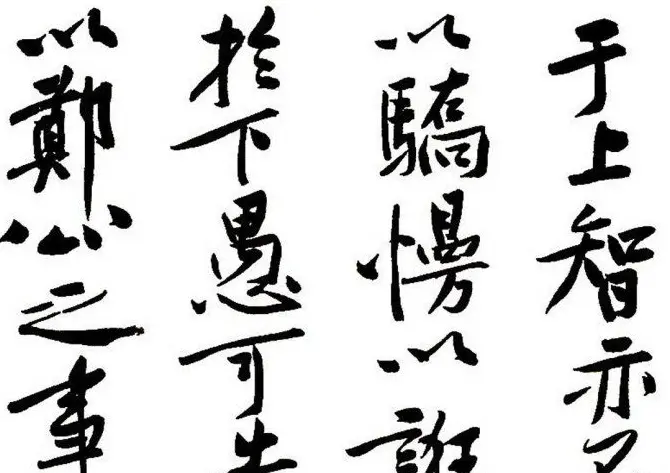 于上智亦
以驕慢以誑
於下愚可
以鄭公之事